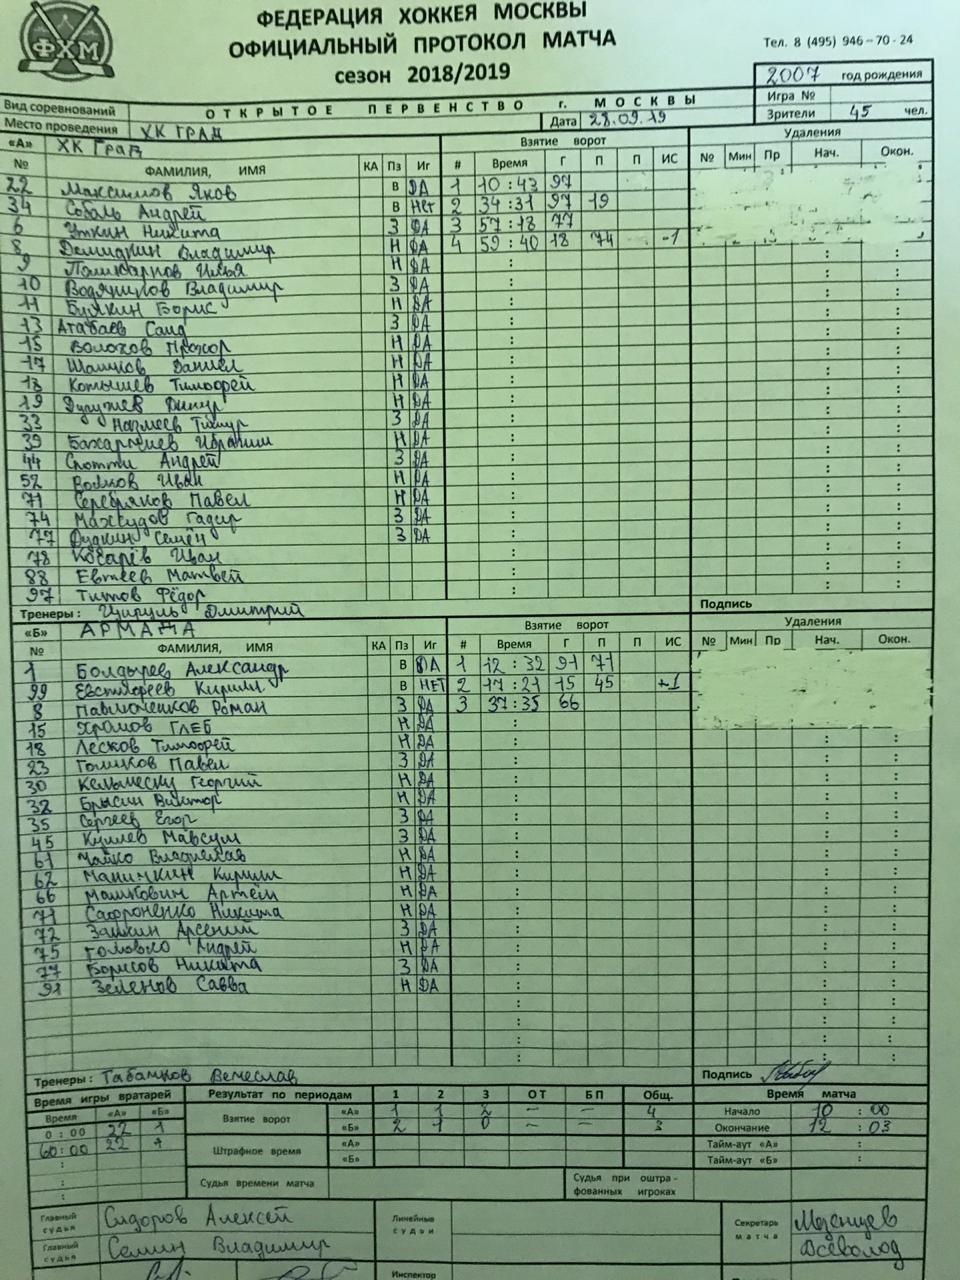 ФХМ
ФЕДЕРАЦИЯ ХОККЕЯ МОСКВЫ
ОФИЦИАЛЬНЫЙ ПРОТОКОЛ МАТЧА
сезон 2018/2019
Тел. 8 (495) 946-70-24
2007 год рождения
Вид соревнований ОТКРЫТОЕ ПЕРВЕНСТВО г. МОСКВЫ Игра №
Место проведения ХК ГРАД Дата 28.09.19 Зрители 45 чел.
«А» ХК Град Взятие ворот Удаления
№ ФАМИЛИЯ, ИМЯ КА Пз Иг # Время Г П П ИС № Мин Пр Нач. Окон.
22 Максимов Яков В ДА 1 10:43 97
34 Соболь Андрей В Нет 2 34:31 97 19
6 Уткин Никита З ДА 3 57:18 77
8 Демидкин Владимир Н ДА 4 59:40 18 74 -1
9 Поликарпов Илья Н ДА
10 Водяников Владимир З ДА
11 Буякин Борис Н ДА
13 Атабаев Саид З ДА
15 Волохов Прохор Н ДА
17 Шашков Даниел Н ДА
18 Котышев Тимофей Н ДА
19 Динур Н ДА
33 Тимур З ДА
39 Ибрагим Н ДА
44 Спотти Андрей З ДА
52 Волков Иван Н ДА
71 Серебряков Павел Н ДА
74 Махсудов Гадир З ДА
77 Дудкин Семён З ДА
78 Косарёв Иван
88 Евтеев Матвей
97 Титов Фёдор
Тренеры: Цыгуль Дмитрий Подпись
«Б» АРМАДА Взятие ворот Удаления
№ ФАМИЛИЯ, ИМЯ КА Пз Иг # Время Г П П ИС № Мин Пр Нач. Окон.
1 Болдырев Александр В ДА 1 12:32 91 71
99 Евстифеев Кирилл В НЕТ 2 17:21 15 45 +1
8 Павлюченков Роман З ДА 3 37:35 66
15 Храмов Глеб Н ДА
18 Лесков Тимофей Н ДА
23 Голиков Павел З ДА
30 Кельмеску Георгий Н ДА
32 Брысин Виктор Н ДА
35 Сергеев Егор З ДА
45 Куилев Максум З ДА
61 Чайко Владислав Н ДА
62 Манинкин Кирилл Н ДА
66 Машкович Артём Н ДА
71 Сафроненко Никита Н ДА
72 Зашкин Арсений З ДА
75 Головко Андрей Н ДА
77 Борисов Никита З ДА
91 Зеленов Савва Н ДА
Тренеры: Табачков Вячеслав Подпись
Время игры вратарей Результат по периодам 1 2 3 ОТ БП Общ. Время матча
Время «А» «Б» Взятие ворот «А» 1 1 2 – – 4 Начало 10:00
0:00 22 1 «Б» 2 1 0 – – 3 Окончание 12:03
60:00 22 1 Штрафное время «А» Тайм-аут «А» :
«Б» Тайм-аут «Б» :
Судья времени матча Судья при оштрафованных игроках
Главный судья Сидоров Алексей Линейные судьи Секретарь матча Мезенцев Всеволод
Главный судья Семин Владимир
Инспектор